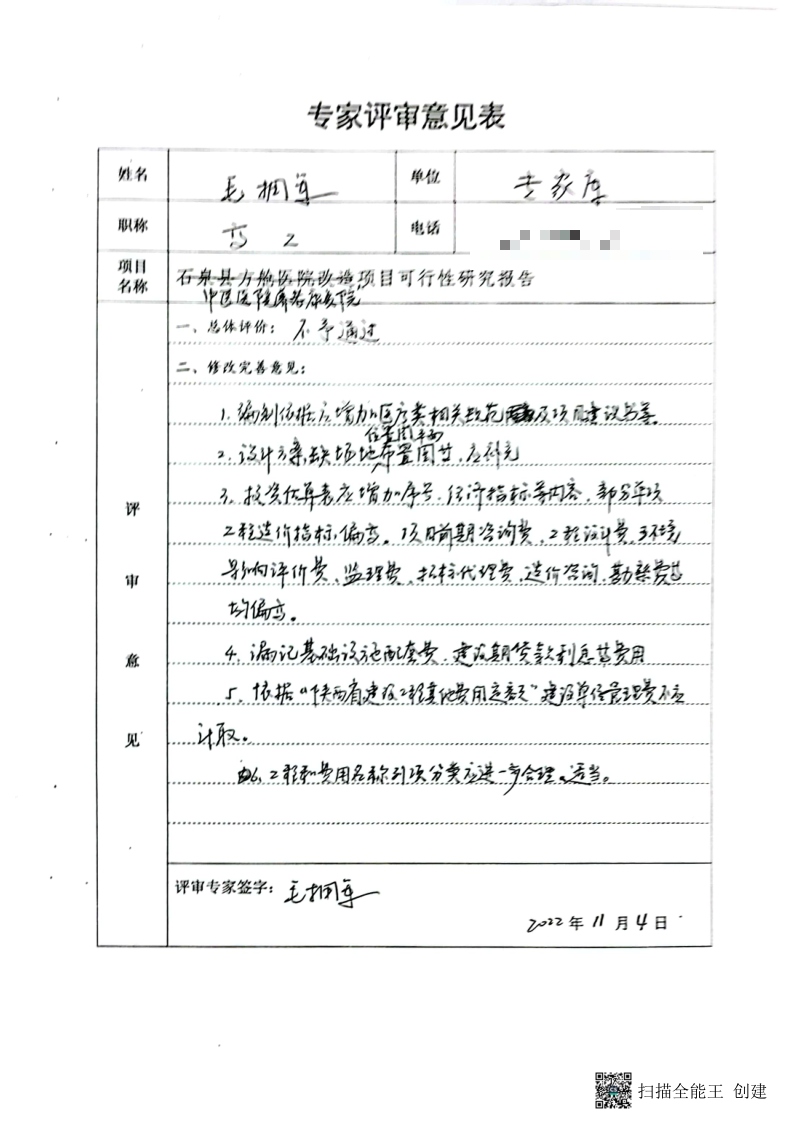 专家评审意见表
姓名 毛拥军 单位 专家库
职称 高工 电话
项目名称 石泉县方舱医院改造项目可行性研究报告
中医医院
一、总体评价: 不予通过
二、修改完善意见:
1. 编制依据应增加医疗类相关规范及项目建议书等。
位置图平面
2. 设计方案缺场地布置图等,应补充
3. 投资估算表应增加序号、经济指标等内容,部分单项
工程造价指标偏高。项目前期咨询费、工程设计费、环境
影响评价费、监理费、招标代理费、造价咨询、勘察费等
均偏高。
4. 漏记基础设施配套费、建设期贷款利息等费用
5. 依据“陕西省建设工程其他费用定额”建设单位管理费不应
计取。
6. 工程和费用名称列项分类应进一步合理、适当。
评审意见
评审专家签字: 毛拥军
2022年11月4日
扫描全能王 创建